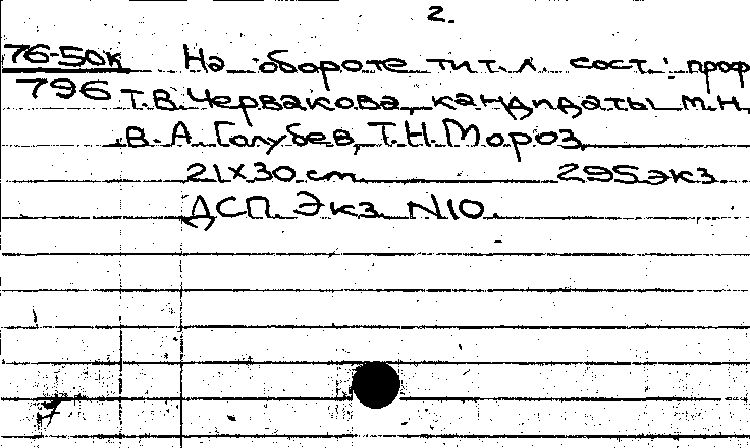 2.
76-50к На обороте тит. л. сост.: проф
796 Т.В. Червакова, кандидаты м.н.
В.А. Голубев, Т.Н. Мороз
21х30 см. 295 экз.
ДСП. Экз. N10.